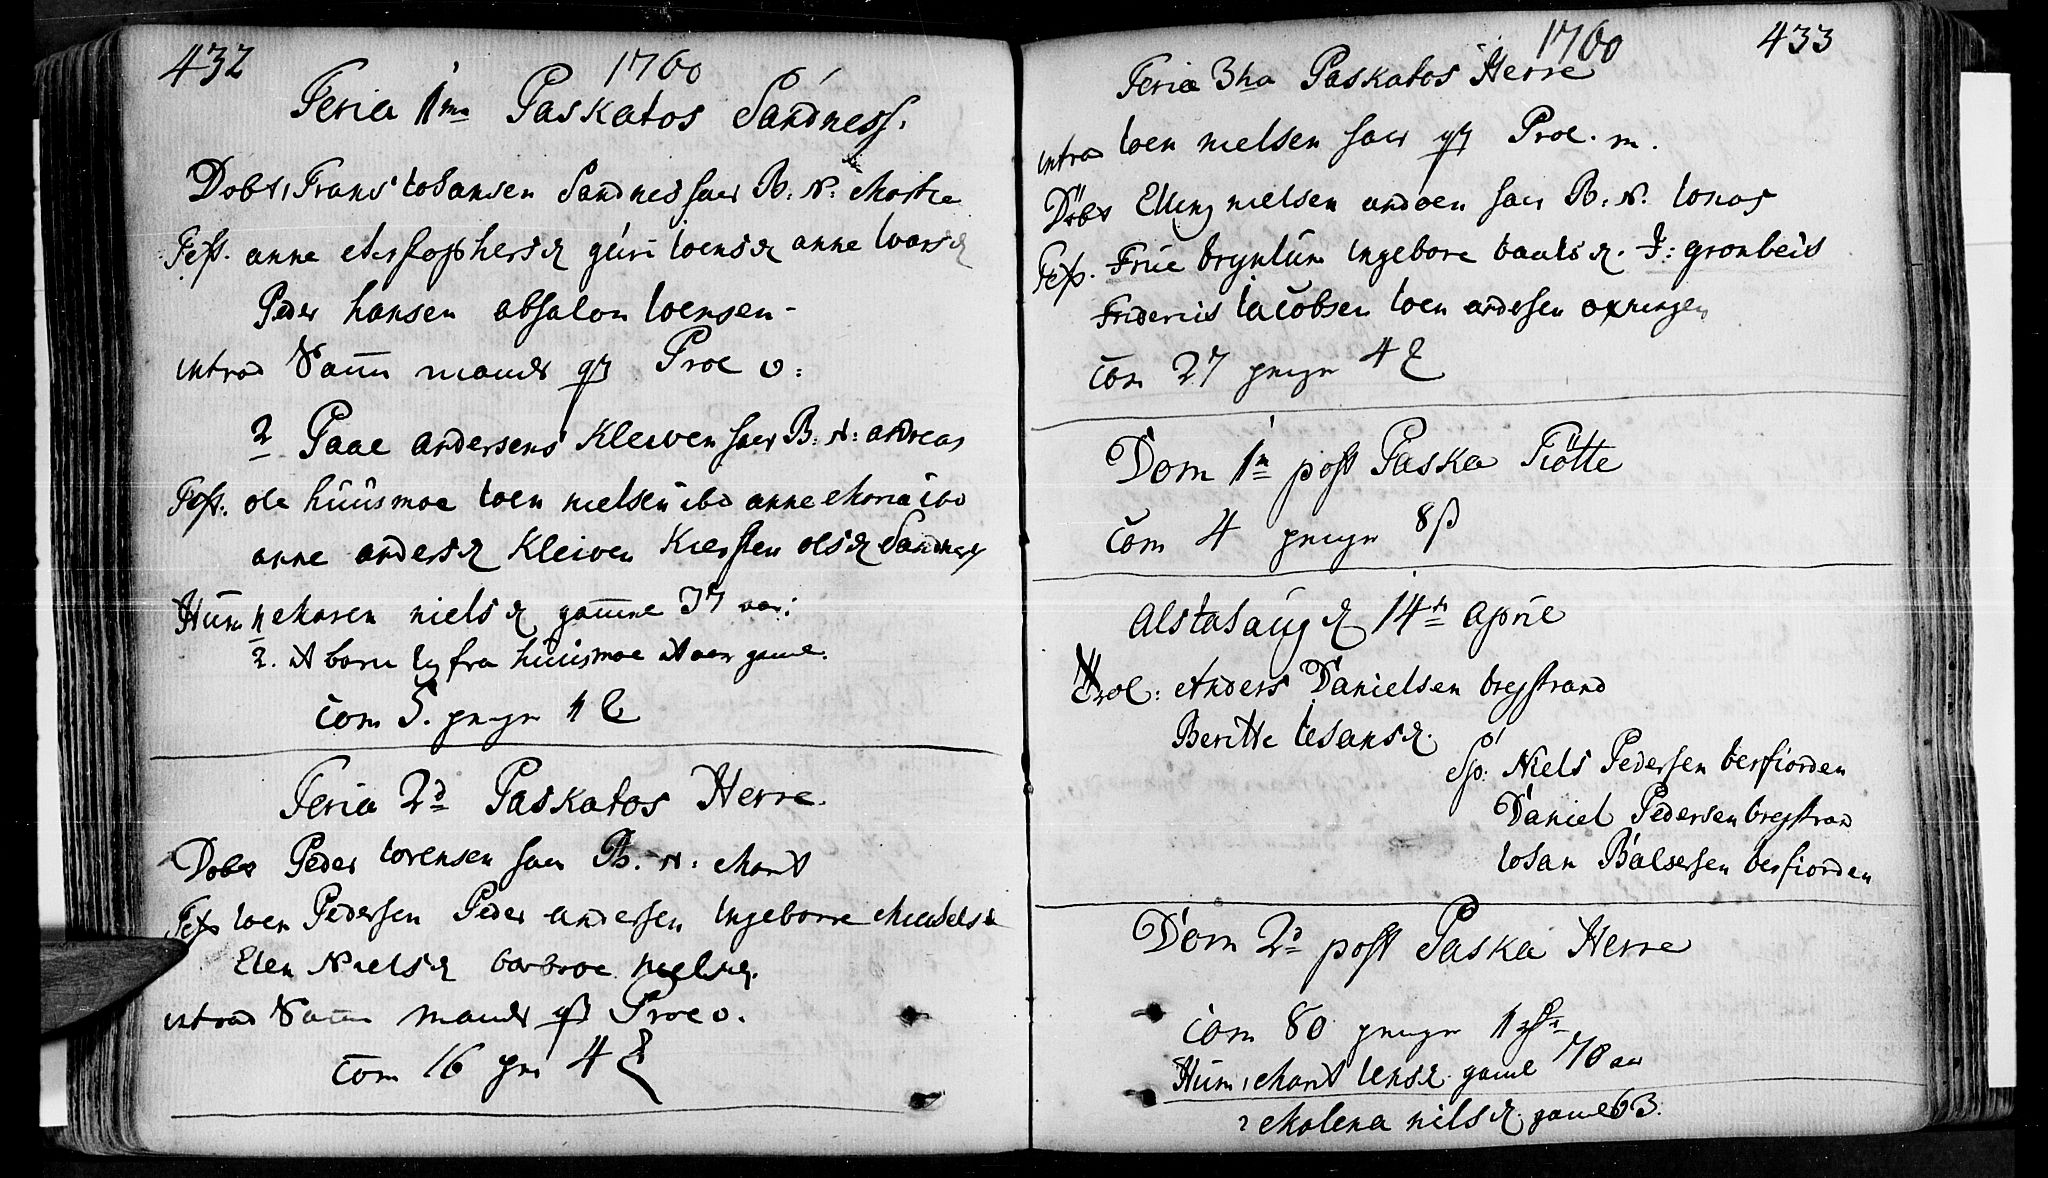 432
1760
Feria 1ma Paskatos Sandness.
Dobt 1 Frans Iohansen Sandnes haer B: N: Marta
Test. anne Christophersd guri Ioensd anne Ivarsd
Peder hansen absalon Ioensen -
intrad mands Proc o:
2 Paae andersens Kleiven haer B: N: andreas
Test: ole huusmoe Ioen nielsen ibd anne Maria ibd
anne andersd Kleiven Kiersten olsd Sandnes
Hum 1 Maren nielsd gamme 37 aar:
2. it barn fra huusmoe it aar gaml.
com 5. 1
Feria 2d Paskatos Herre.
Dobt Peder lorensen haer B. N: Marit
Test Ioen Pedersen Peder andersen Ingeborre
Elen Nielsd barbroe nielsd.
intrad mands Proc o.
com 16 4
1760
433
Feria 3tia Paskatos Herre
intrad Ioen nielsen haer Proc. m.
Döbt Elling nielsen andoen haer B. N. Ionas
Test. Frue brynlun Ingebore F: gronbeis
Fridericus Iacobsen Ioen andersen oxningen
com 27 4
Dom 1m post Paska Tiötte
com 4 8 ß
Alstahaug d 14de aprie
Trol: Anders Danielsen breystrand
Beritte Iehansd.
Sp: Niels Pedersen berfiorden
Daniel Pedersen breystran
Iohan Balsersen berfiorden
Dom 2d post Paska Herre
com 80 1
Hum 1 Marit Iensd. gaml 70 aar
2 Malena nilsd. gaml 63.